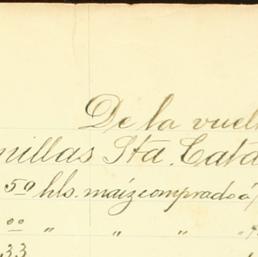 De la vuel
nillas Sta. Cata
50 hls. maiz comprado á
00 " " " "
33